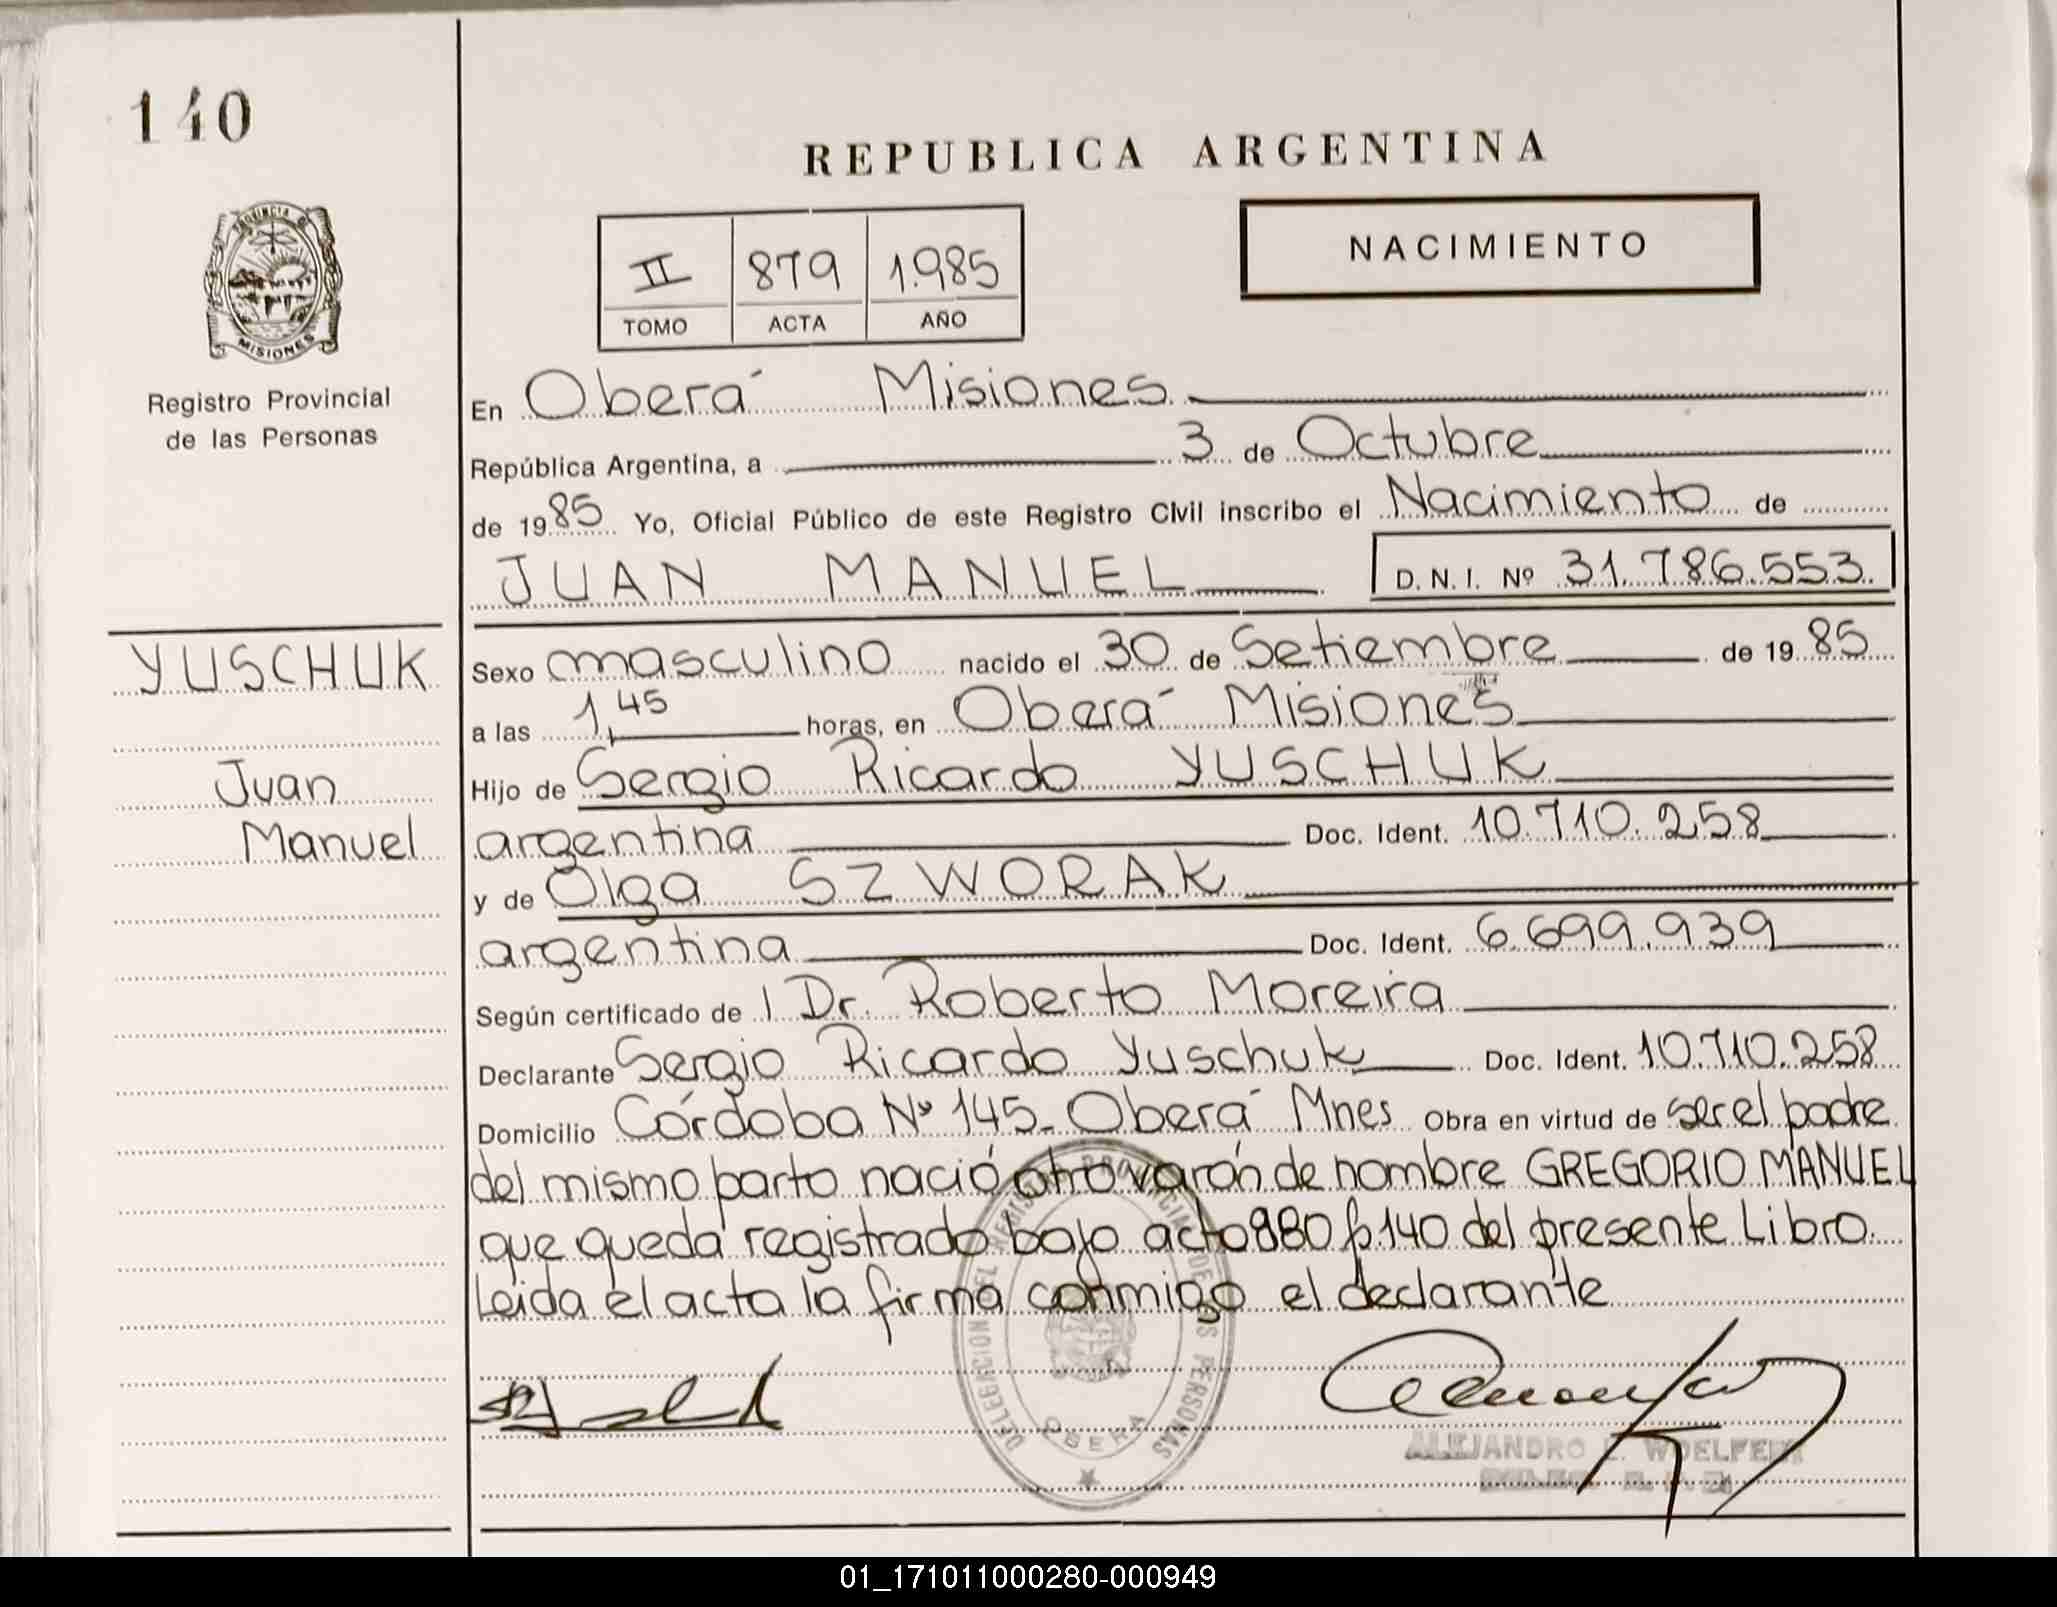 140
REPUBLICA ARGENTINA
PROVINCIA DE
MISIONES
Registro Provincial
de las Personas
II 879 1.985
TOMO ACTA AÑO
NACIMIENTO
En Oberá Misiones
República Argentina, a 3 de Octubre
de 1985 Yo, Oficial Público de este Registro Civil inscribo el Nacimiento de
JUAN MANUEL D.N.I. Nº 31.786.553
YUSCHUK
Juan
Manuel
Sexo masculino nacido el 30 de Setiembre de 1985
a las 1,45 horas, en Oberá Misiones
Hijo de Sergio Ricardo YUSCHUK
argentina Doc. Ident. 10.710.258
y de Olga SZWORAK
argentina Doc. Ident. 6.699.939
Según certificado de l Dr. Roberto Moreira
Declarante Sergio Ricardo Yuschuk Doc. Ident. 10.710.258
Domicilio Córdoba Nº 145_ Oberá Mnes Obra en virtud de ser el padre
del mismo parto nació otro varón de nombre GREGORIO MANUEL
que queda registrado bajo acta 880 fº 140 del presente Libro.
Leida el acta la firma conmigo el declarante
DELEGACION DEL REGISTRO PROVINCIAL DE LAS PERSONAS
OBERA
ALEJANDRO WOELFERT
01_171011000280-000949